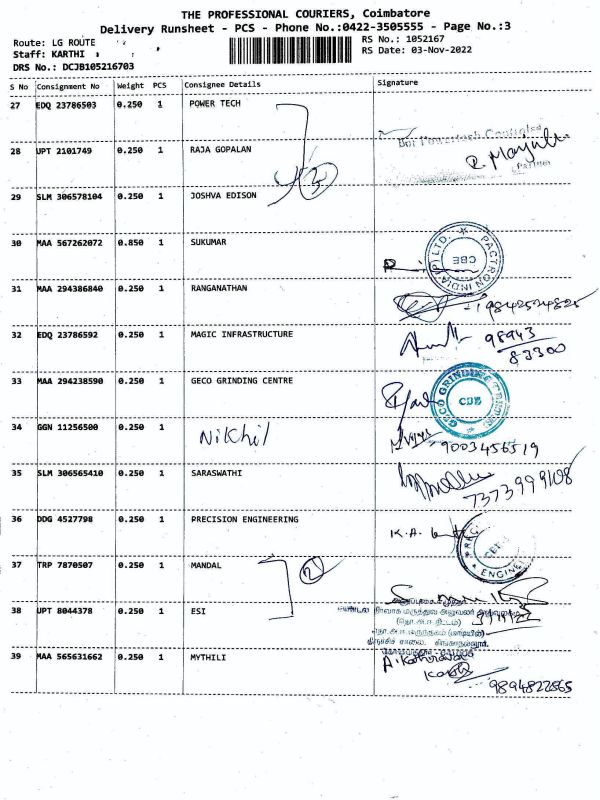 THE PROFESSIONAL COURIERS, Coimbatore
Delivery Runsheet - PCS - Phone No.:0422-3505555 - Page No.:3
Route: LG ROUTE
RS No.: 1052167
Staff: KARTHI
RS Date: 03-Nov-2022
DRS No.: DCJB105216703
S No Consignment No Weight PCS Consignee Details Signature
27 EDQ 23786503 0.250 1 POWER TECH
28 UPT 2101749 0.250 1 RAJA GOPALAN
Partner
3
29 SLM 306578104 0.250 1 JOSHVA EDISON
30 MAA 567262072 0.850 1 SUKUMAR
PACTRON INDIA (P) LTD. CBE
31 MAA 294386840 0.250 1 RANGANATHAN
32 EDQ 23786592 0.250 1 MAGIC INFRASTRUCTURE
98943
83300
33 MAA 294238590 0.250 1 GECO GRINDING CENTRE
GECO GRINDING CENTRE CBE
34 GGN 11256500 0.250 1 Nikhil
9003456519
35 SLM 306565410 0.250 1 SARASWATHI
7373999108
36 DDG 4527798 0.250 1 PRECISION ENGINEERING
K.A.
37 TRP 7870507 0.250 1 MANDAL
2
38 UPT 8044378 0.250 1 ESI
39 MAA 565631662 0.250 1 MYTHILI
9894822565